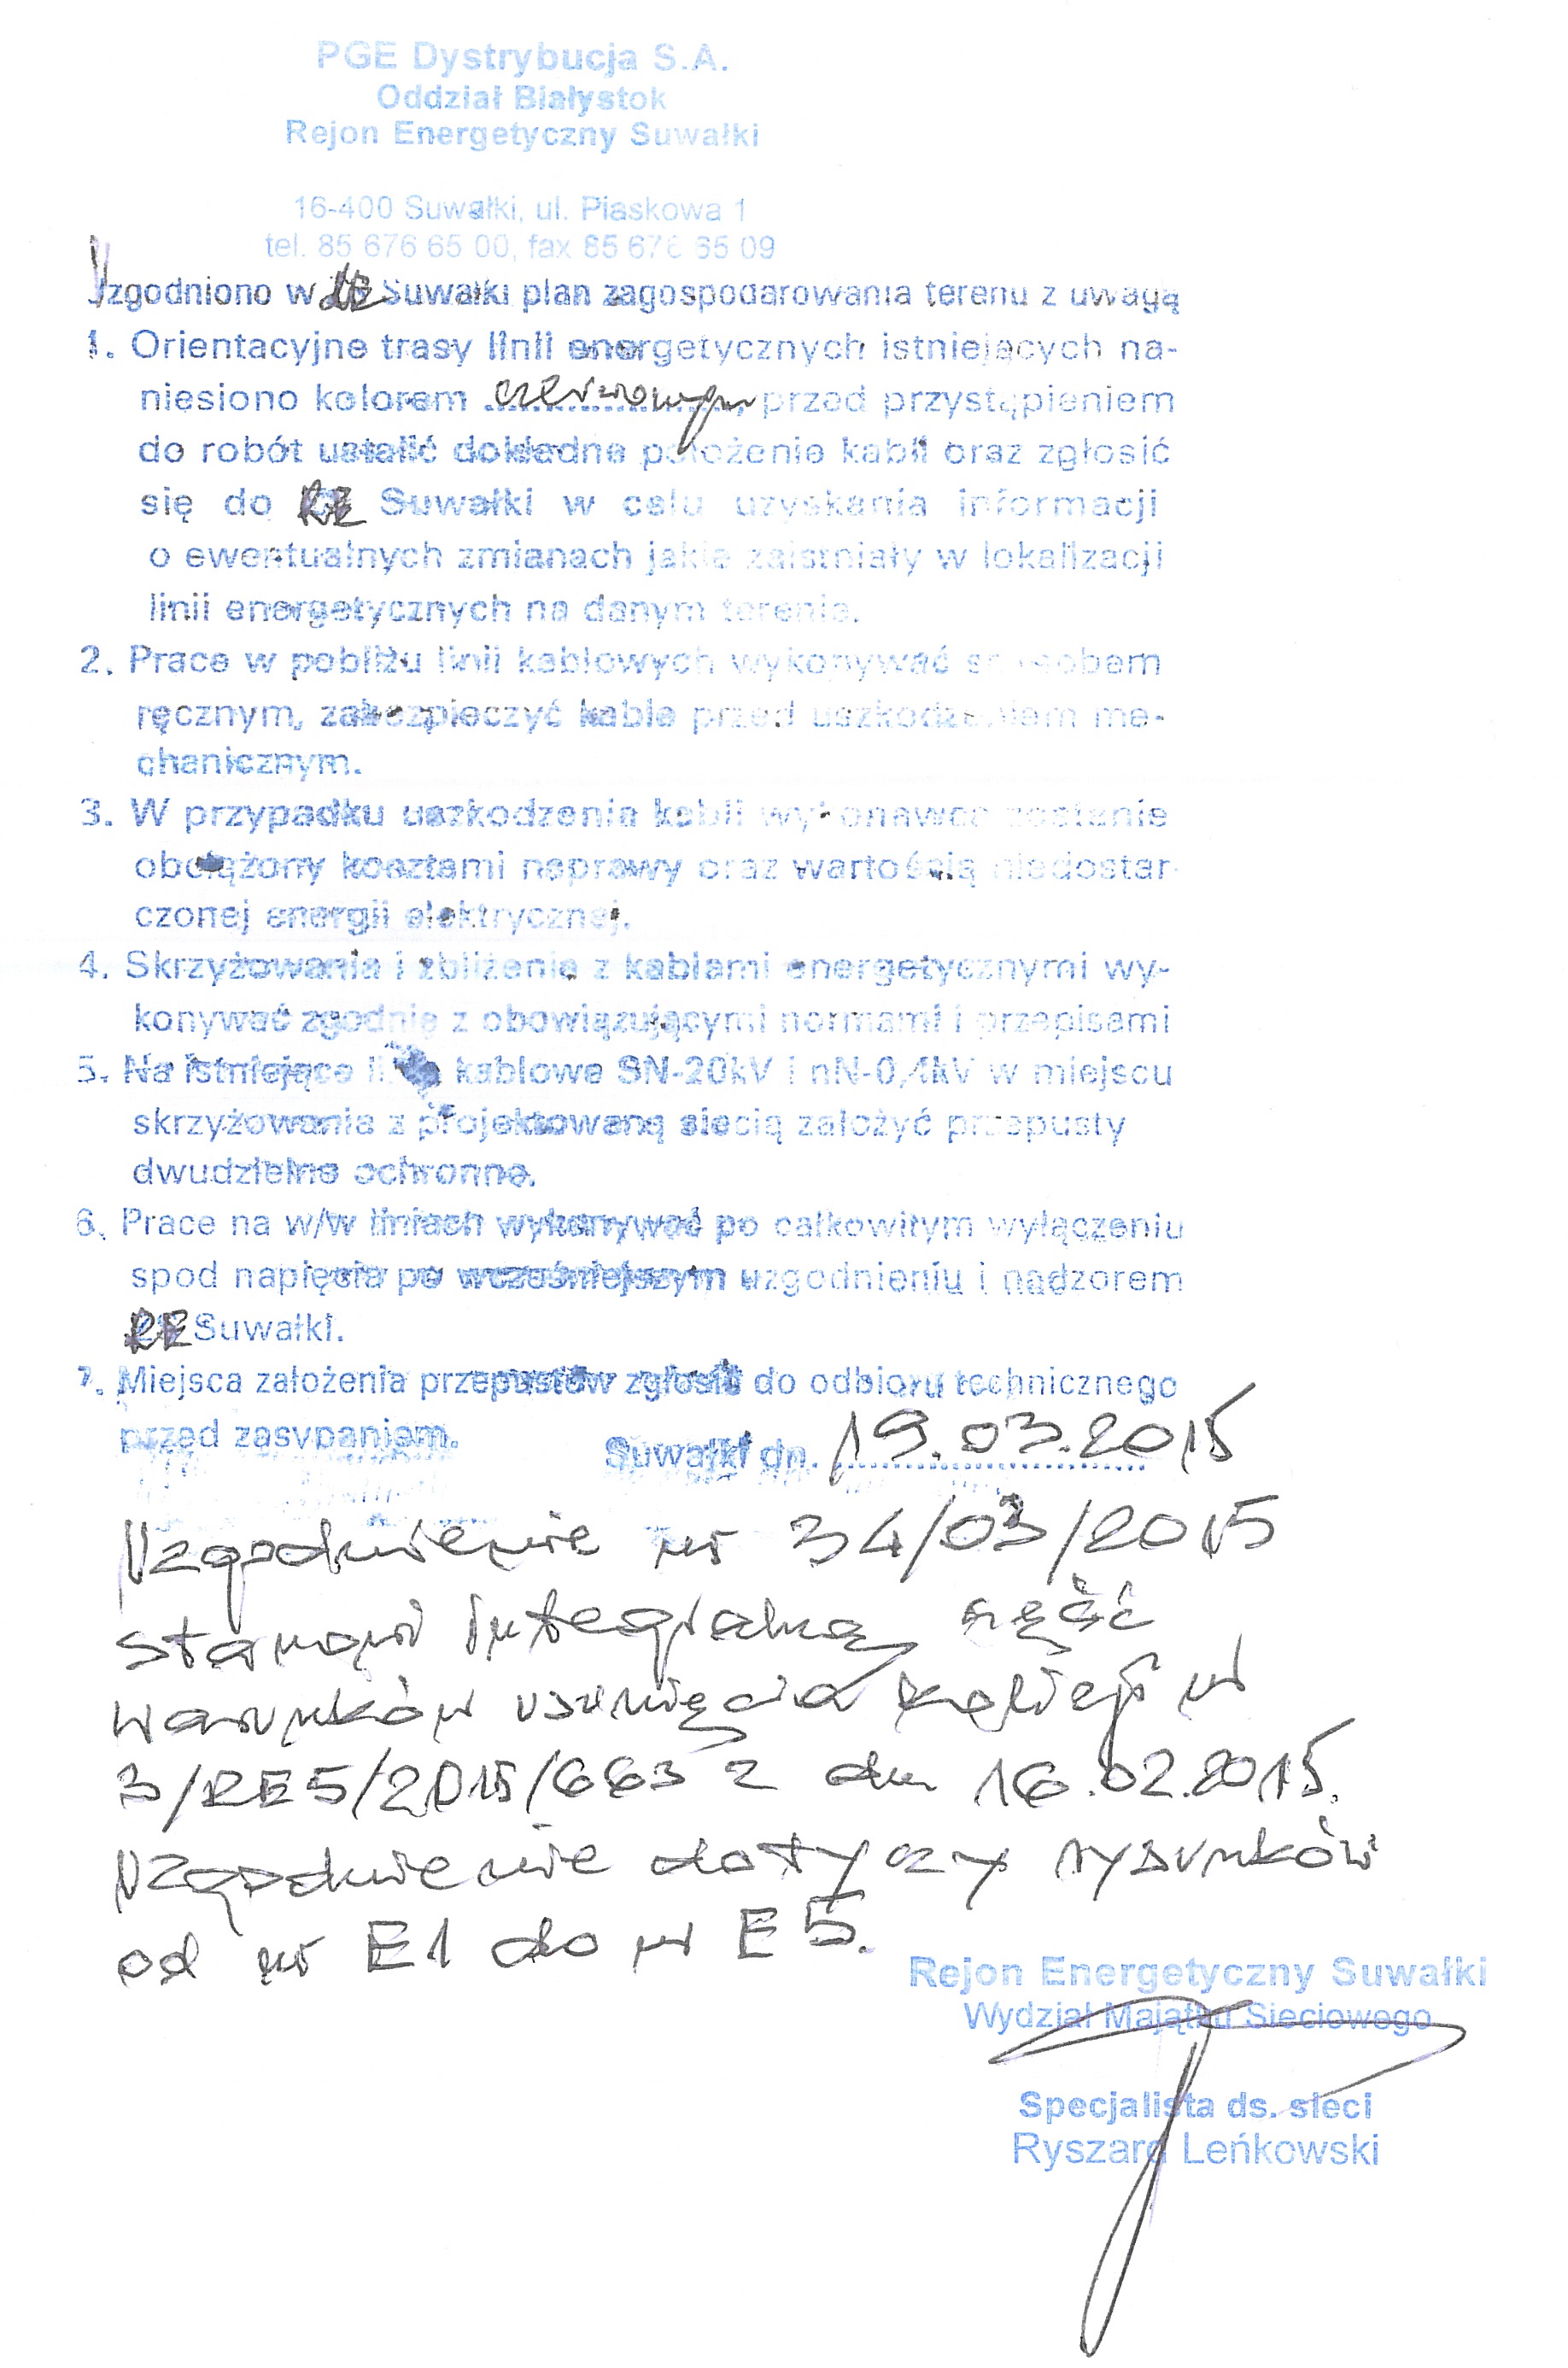 PGE Dystrybucja S.A.
Oddział Białystok
Rejon Energetyczny Suwałki
16-400 Suwałki, ul. Piaskowa 1
tel. 85 676 65 00, fax 85 676 65 09
Uzgodniono w RE Suwałki plan zagospodarowania terenu z uwagą
1. Orientacyjne trasy linii energetycznych istniejących na-
niesiono kolorem czerwonym, przed przystąpieniem
do robót ustalić dokładne położenie kabli oraz zgłosić
się do RE Suwałki w celu uzyskania informacji
o ewentualnych zmianach jakie zaistniały w lokalizacji
linii energetycznych na danym terenie.
2. Prace w pobliżu linii kablowych wykonywać sposobem
ręcznym, zabezpieczyć kable przed uszkodzeniem me-
chanicznym.
3. W przypadku uszkodzenia kabli wykonawca zostanie
obciążony kosztami naprawy oraz wartością niedostar-
czonej energii elektrycznej.
4. Skrzyżowania i zbliżenia z kablami energetycznymi wy-
konywać zgodnie z obowiązującymi normami i przepisami
5. Na istniejące linie kablowe SN-20kV i nN-0,4kV w miejscu
skrzyżowania z projektowaną siecią założyć przepusty
dwudzielne ochronne.
6. Prace na w/w liniach wykonywać po całkowitym wyłączeniu
spod napięcia po wcześniejszym uzgodnieniu i nadzorem
RE Suwałki.
7. Miejsca założenia przepustów zgłosić do odbioru technicznego
przed zasypaniem.
Suwałki dn. 19.03.2015
Uzgodnienie nr 34/03/2015
stanowi integralną część
warunków usunięcia kolizji nr
3/RE5/2015/663 z dn 16.02.2015.
Uzgodnienie dotyczy rysunków
od nr E1 do nr E5.
Rejon Energetyczny Suwałki
Wydział Majątku Sieciowego
Specjalista ds. sieci
Ryszard Leńkowski